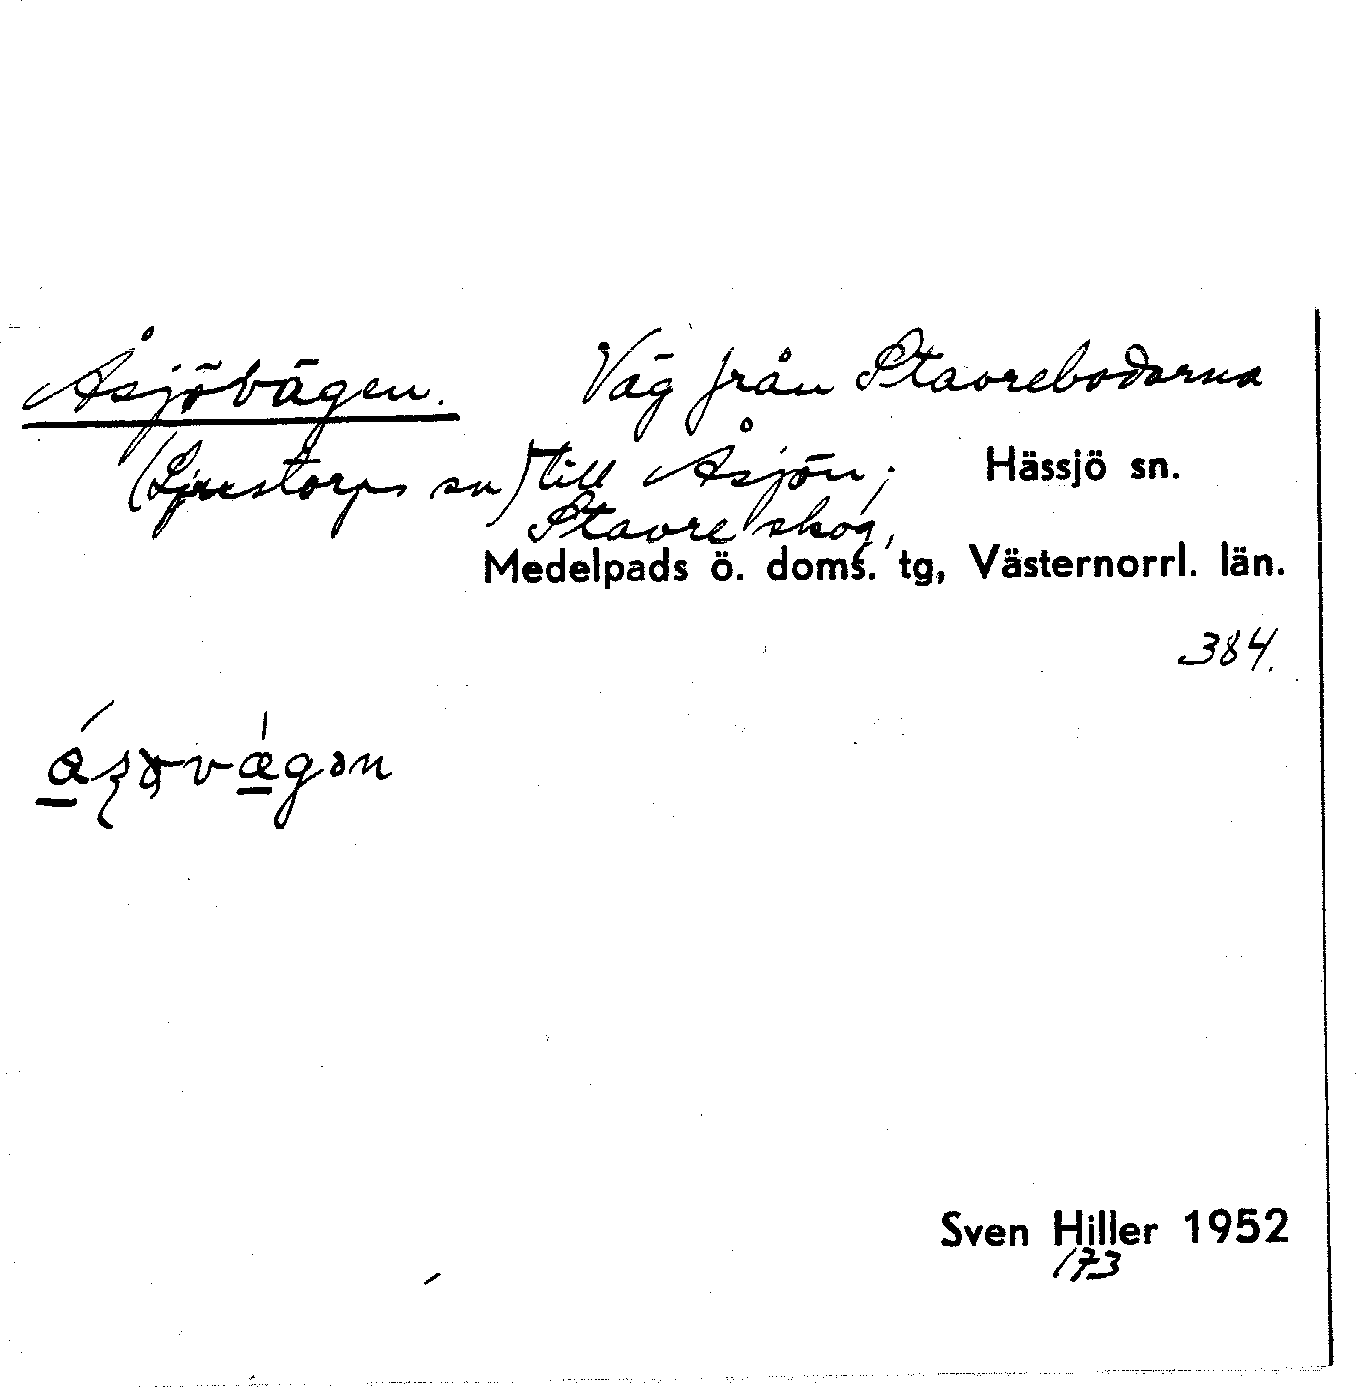 Åsjövägen. Väg från Stavrebodarna
(Ljustorps sn) till Åsjön; Hässjö sn.
Stavre skog,
Medelpads ö. doms. tg, Västernorrl. län.
384.
Sven Hiller 1952
173